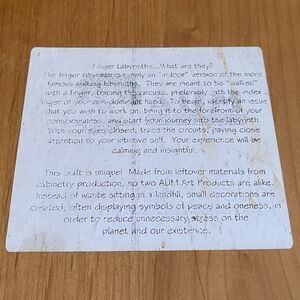 Finger Labyrinths...What are they?
The finger labyrinth is merely an "indoor" version of the more
famous walking labyrinths. They are meant to be "walked"
with a finger, tracing the circuits, preferably with the index
finger of your non-dominant hand. To begin, identify an issue
that you wish to work on, bring it to the forefront of your
consciousness, and start your journey into the labyrinth.
With your eyes closed, trace the circuits, paying close
attention to your intuitive self. Your experience will be
calming and insightful.
This craft is unique! Made from leftover materials from
cabinetry production, no two AUM Art Products are alike.
Instead of waste sitting in a landfill, small decorations are
created, often displaying symbols of peace and oneness, in
order to reduce unnecessary stress on the
planet and our existence.